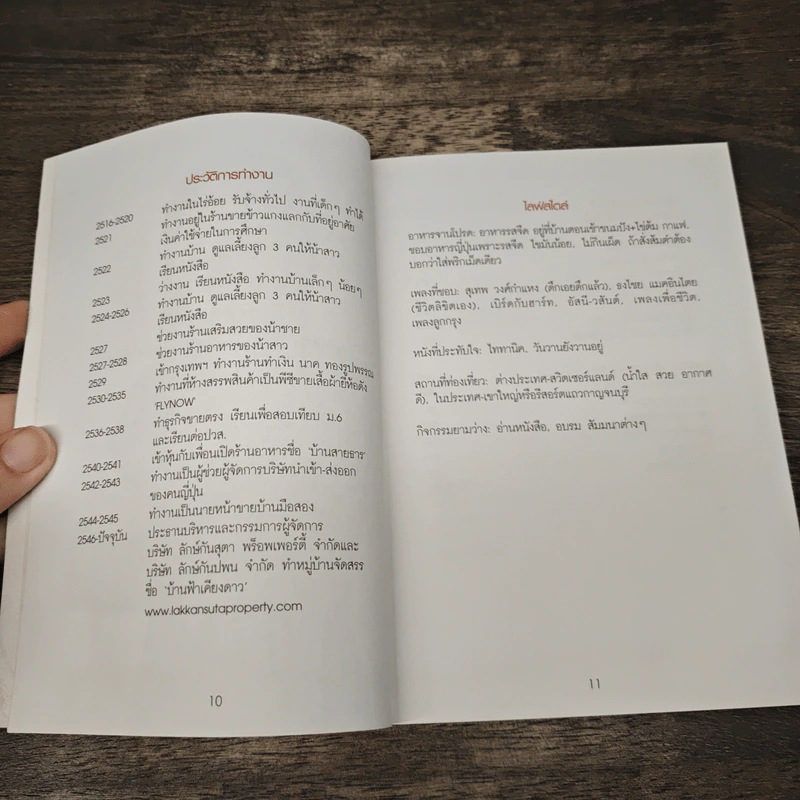 ประวัติการทำงาน
2516-2520 ทำงานในไร่อ้อย รับจ้างทั่วไป งานที่เด็กๆ ทำได้
2521 ทำงานอยู่ในร้านขายข้าวแกงแลกกับที่อยู่อาศัย
เงินค่าใช้จ่ายในการศึกษา
2522 ทำงานบ้าน ดูแลเลี้ยงลูก 3 คนให้น้าสาว
เรียนหนังสือ
2523 ว่างงาน เรียนหนังสือ ทำงานบ้านเล็กๆ น้อยๆ
2524-2526 ทำงานบ้าน ดูแลเลี้ยงลูก 3 คนให้น้าสาว
เรียนหนังสือ
2527 ช่วยงานร้านเสริมสวยของน้าชาย
2527-2528 ช่วยงานร้านอาหารของน้าสาว
2529 เข้ากรุงเทพฯ ทำงานร้านทำเงิน นาค ทองรูปพรรณ
2530-2535 ทำงานที่ห้างสรรพสินค้าเป็นพีซีขายเสื้อผ้ายี่ห้อดัง
'FLYNOW'
2536-2538 ทำธุรกิจขายตรง เรียนเพื่อสอบเทียบ ม.6
และเรียนต่อปวส.
2540-2541 เข้าหุ้นกับเพื่อนเปิดร้านอาหารชื่อ 'บ้านสายธาร'
2542-2543 ทำงานเป็นผู้ช่วยผู้จัดการบริษัทนำเข้า-ส่งออก
ของคนญี่ปุ่น
2544-2545 ทำงานเป็นนายหน้าขายบ้านมือสอง
2546-ปัจจุบัน ประธานบริหารและกรรมการผู้จัดการ
บริษัท ลักษ์กันสุตา พร็อพเพอร์ตี้ จำกัดและ
บริษัท ลักษ์กันปพน จำกัด ทำหมู่บ้านจัดสรร
ชื่อ 'บ้านฟ้าเคียงดาว'
www.lakkansutaproperty.com
10
ไลฟ์สไตล์
อาหารจานโปรด: อาหารรสจืด อยู่ที่บ้านตอนเช้าขนมปัง+ไข่ต้ม กาแฟ,
ชอบอาหารญี่ปุ่นเพราะรสจืด ไขมันน้อย, ไม่กินเผ็ด ถ้าสั่งส้มตำต้อง
บอกว่าใส่พริกเม็ดเดียว
เพลงที่ชอบ: สุเทพ วงศ์กำแหง (ดึกเอยดึกแล้ว), ธงไชย แมคอินไตย
(ชีวิตลิขิตเอง), เบิร์ดกับฮาร์ท, อัสนี-วสันต์, เพลงเพื่อชีวิต,
เพลงลูกกรุง
หนังที่ประทับใจ: ไททานิค, วันวานยังวานอยู่
สถานที่ท่องเที่ยว: ต่างประเทศ-สวิตเซอร์แลนด์ (น้ำใส สวย อากาศ
ดี), ในประเทศ-เขาใหญ่หรือรีสอร์ตแถวกาญจนบุรี
กิจกรรมยามว่าง: อ่านหนังสือ, อบรม สัมมนาต่างๆ
11